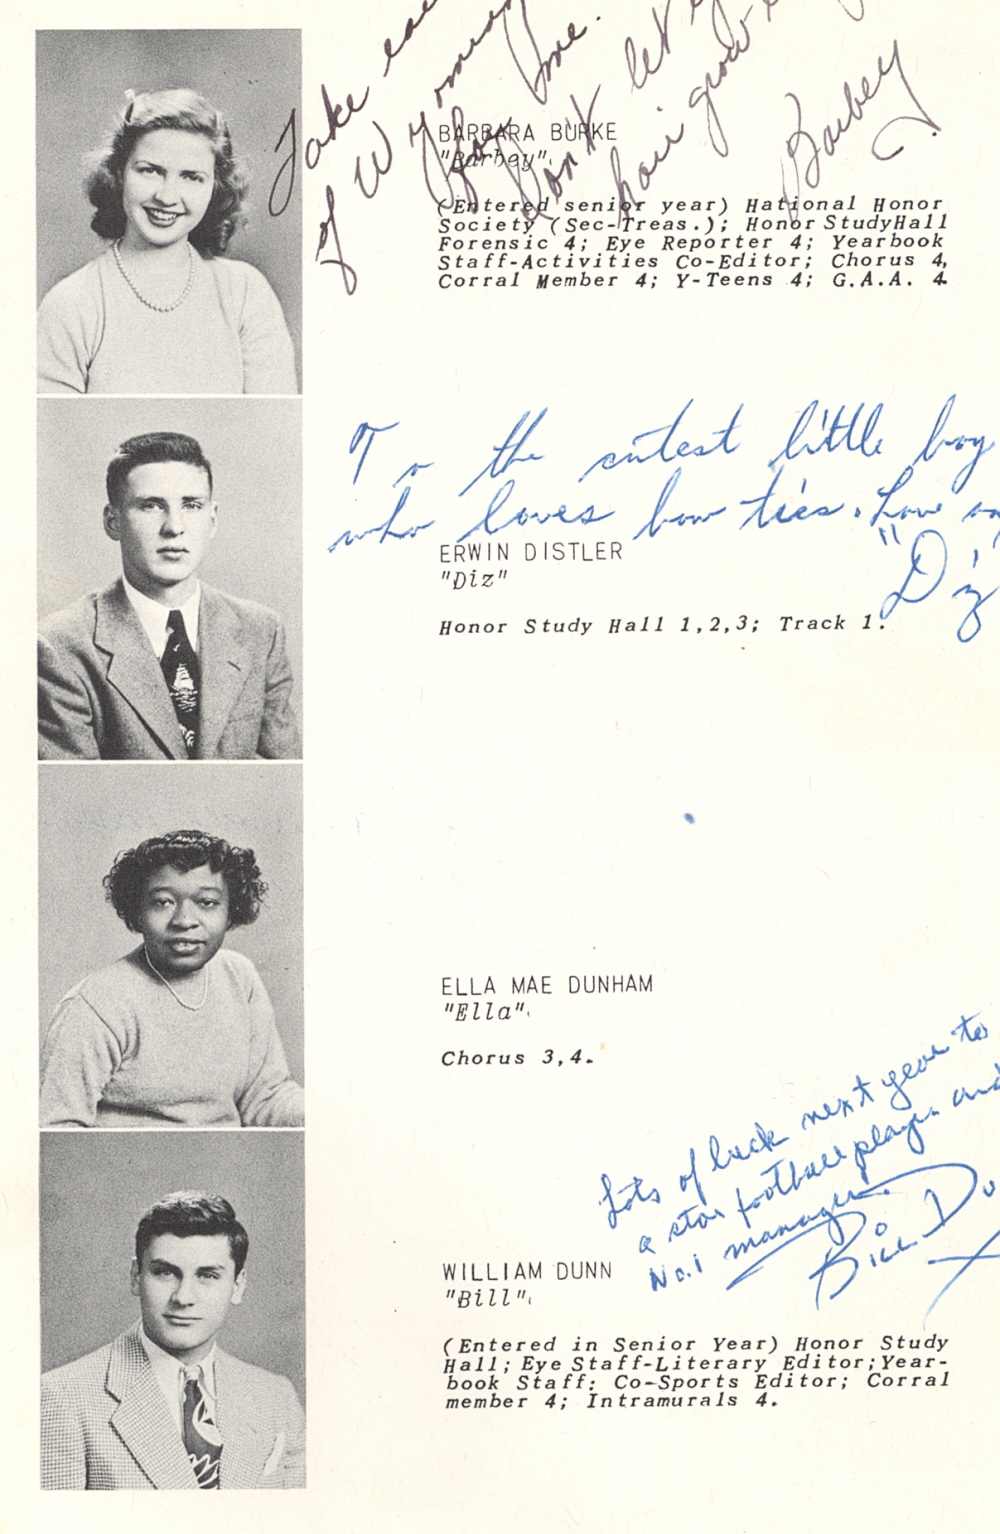 Take
of Wyoming
for me.
Don't let
hair grow
Barbey
BARBARA BURKE
"Barbey"
(Entered senior year) National Honor
Society (Sec-Treas.); Honor StudyHall
Forensic 4; Eye Reporter 4; Yearbook
Staff-Activities Co-Editor; Chorus 4,
Corral Member 4; Y-Teens 4; G.A.A. 4.
To the cutest little boy
who loves bow ties. Love
"Diz"
ERWIN DISTLER
"Diz"
Honor Study Hall 1,2,3; Track 1.
ELLA MAE DUNHAM
"Ella"
Chorus 3,4.
Lots of luck next year to
a star football player and
No.1 manager.
Bill Du
WILLIAM DUNN
"Bill"
(Entered in Senior Year) Honor Study
Hall; Eye Staff-Literary Editor; Year-
book Staff: Co-Sports Editor; Corral
member 4; Intramurals 4.